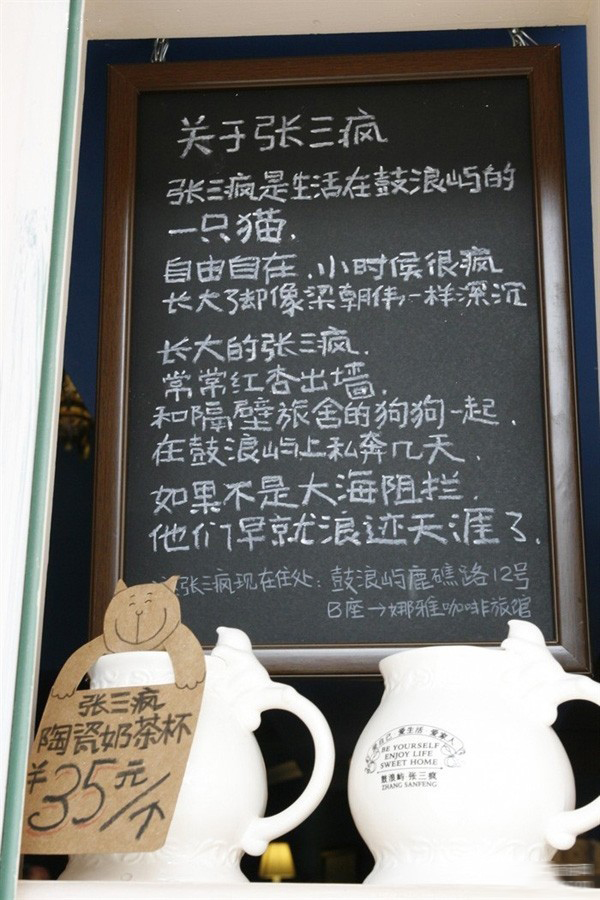 关于张三疯
张三疯是生活在鼓浪屿的
一只猫.
自由自在.小时侯很疯
长大了却像梁朝伟一样深沉
长大的张三疯.
常常红杏出墙.
和隔壁旅舍的狗狗一起.
在鼓浪屿上私奔几天.
如果不是大海阻拦.
他们早就浪迹天涯了.
张三疯现在住处:鼓浪屿鹿礁路12号
B座→娜雅咖啡旅馆
张三疯
陶瓷奶茶杯
¥35元/个
自己 爱生活 爱家人
BE YOURSELF
ENJOY LIFE
SWEET HOME
鼓浪屿 张三疯
ZHANG SANFENG